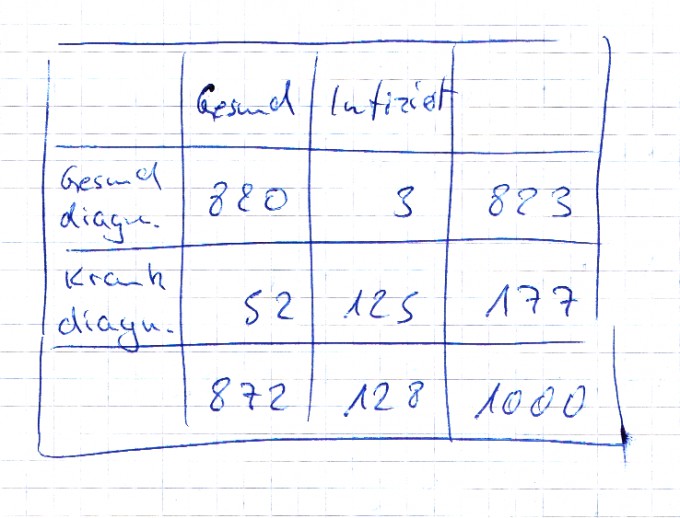 Gesund Infiziert
Gesund
diagn. 820 3 823
Krank
diagn. 52 125 177
872 128 1000